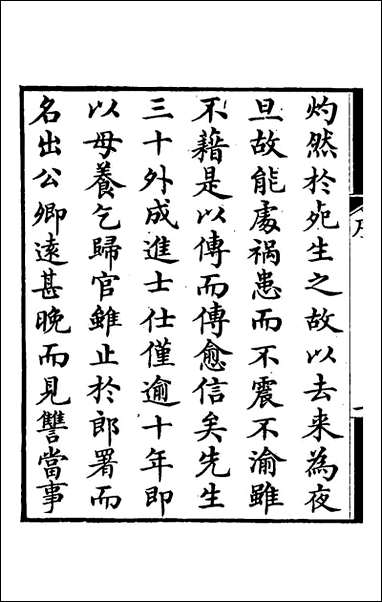 灼然於死生之故以去来為夜
旦故能處禍患而不震不渝雖
不藉是以傳而傳愈信矣先生
三十外成進士仕僅逾十年即
以母養乞歸官雖止於郎署而
名出公卿遠甚晚而見讐當事